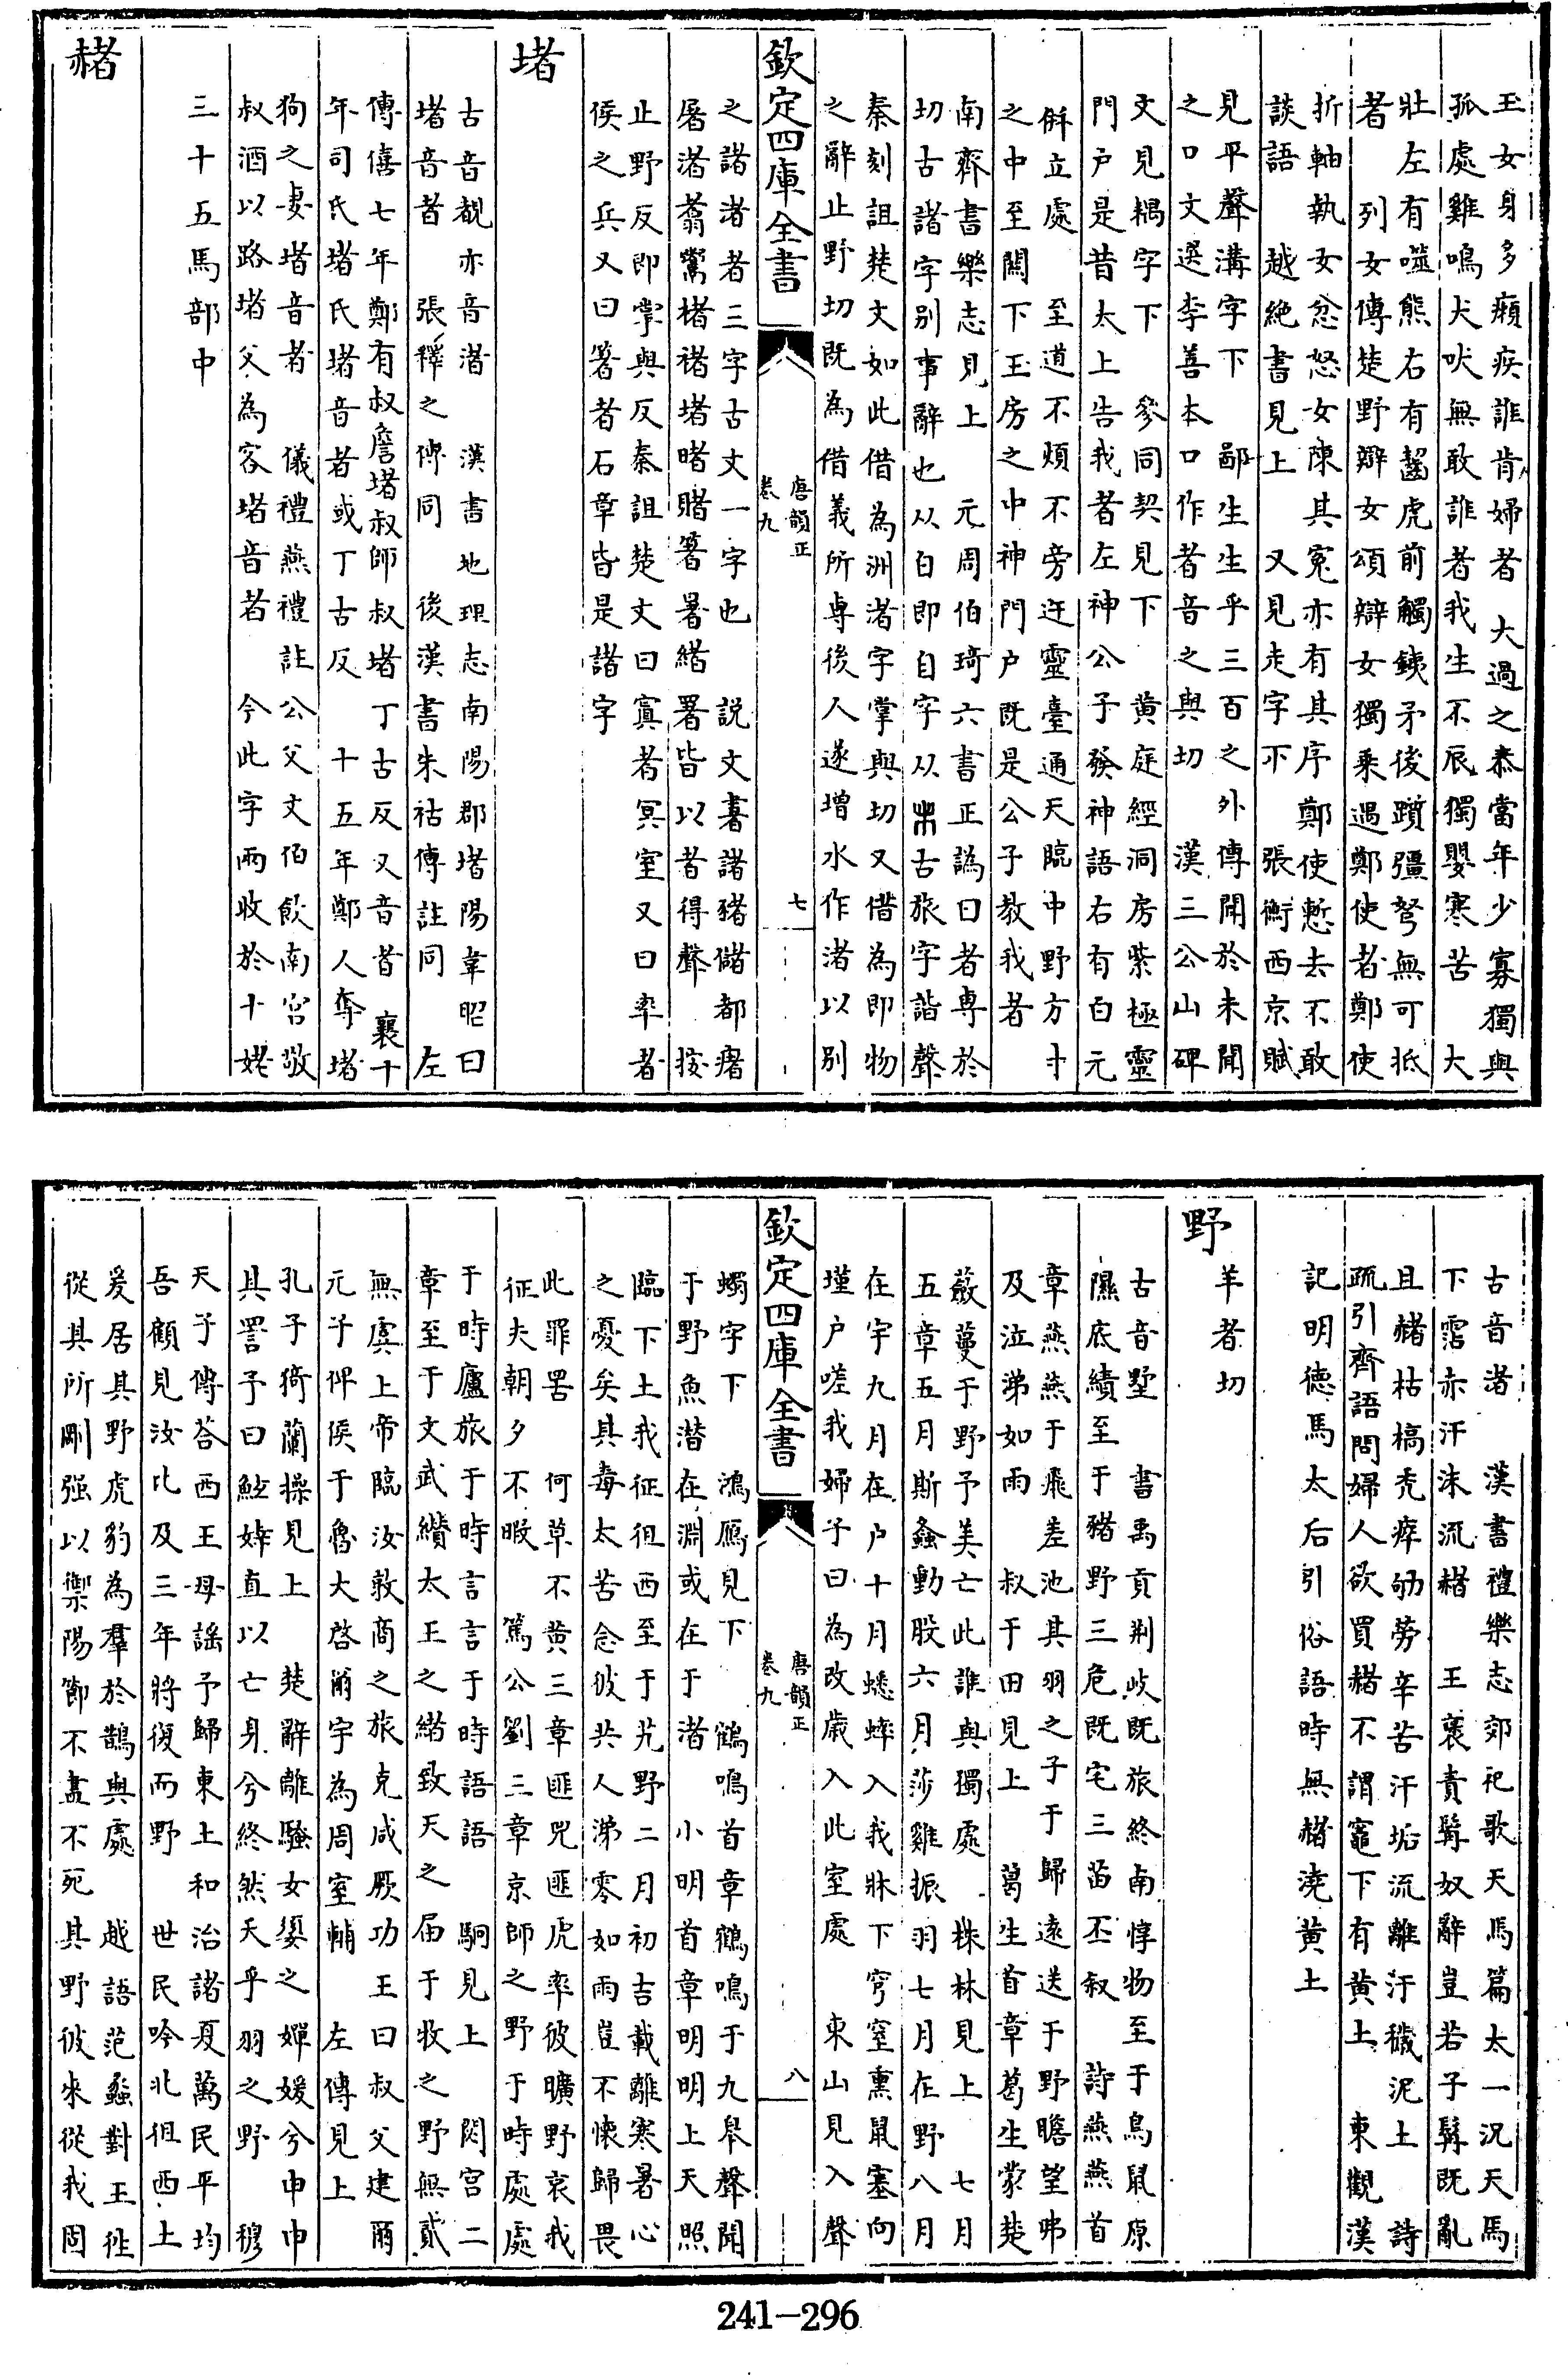 玉女身多癩疾誰肯婦者　大過之恭當年少寡獨與
孤處雞鳴犬吠無敢誰者我生不辰獨嬰寒苦　大
壯左有噬熊右有齧虎前觸鋨矛後躓彊弩無可抵
者　列女傳楚野辯女頌辯女獨乘遇鄭使者鄭使
折軸執女忿怒女陳其寃亦有其序鄭使慙去不敢
談語　越絶書見上　又見走字下　張衡西京賦
見平聲溝字下　鄙生生乎三百之外傳聞於未聞
之口文選李善本口作者音之與切　漢三公山碑
文見耦字下　參同契見下　黄庭經洞房紫極靈
門户是昔太上告我者左神公子發神語右有白元
併立處　至道不煩不旁迕靈臺通天臨中野方寸
之中至闗下玉房之中神門户既是公子教我者
南齊書樂志見上　元周伯琦六書正譌曰者專於
切古諸字别事辭也以白即自字以𣎵古旅字諧聲
秦刻詛楚文如此借為洲渚字掌與切又借為即物
之辭止野切既為借義所専後人遂增水作渚以别
欽定四庫全書
唐韻正
卷九
七
之諸渚者三字古文一字也　説文書諸豬儲都𤺋
屠渚蓊鸞楮禇堵暏賭箸暑緒署皆以者得聲　按
止野反即掌與反秦詛楚文曰寘者冥室又曰率者
侯之兵又曰箸者石章皆是諸字
堵
古音覩亦音渚　漢書地理志南陽郡堵陽韋昭曰
堵音者　張釋之傳同　後漢書朱祜傳註同　左
傳僖七年鄭有叔詹堵叔師叔堵丁古反又音者　襄十
年司氏堵氏堵音者或丁古反　十五年鄭人奪堵
狗之妻堵音者　儀禮燕禮註公父文伯飲南宫敬
叔酒以路堵父為客堵音者　今此字兩收於十姥
三十五馬部中
赭
古音渚　漢書禮樂志郊祀歌天馬篇太一況天馬
下霑赤汗沫流赭　王褒責髯奴辭豈若子髯既亂
且赭枯槁秃瘁劬勞辛苦汗垢流離汙穢泥土　詩
疏引齊語問婦人欲買赭不謂竈下有黄土　東觀漢
記明德馬太后引俗語時無赭澆黄土
野
羊者切
古音墅　書禹貢荆岐既旅終南惇物至于鳥鼠原
隰底績至于豬野三危既宅三苗丕叙　詩燕燕首
章燕燕于飛差池其羽之子于歸遠送于野瞻望弗
及泣涕如雨　叔于田見上　葛生首章葛生蒙楚
蘞蔓于野予美亡此誰與獨處　株林見上　七月
五章五月斯螽動股六月莎雞振羽七月在野八月
在宇九月在户十月蟋蟀入我牀下穹窒熏鼠塞向
墐户嗟我婦子曰為改歲入此室處　東山見入聲
欽定四庫全書
唐韻正
卷九
八
蠋字下　鴻鴈見下　鶴鳴首章鶴鳴于九臯聲聞
于野魚潛在淵或在于渚　小明首章明明上天照
臨下土我征徂西至于艽野二月初吉載離寒暑心
之憂矣其毒太苦念彼共人涕零如雨豈不懷歸畏
此罪罟　何草不黄三章匪兕匪虎率彼曠野哀我
征夫朝夕不暇　篤公劉三章京師之野于時處處
于時廬旅于時言言于時語語　駉見上　閟宫二
章至于文武纘太王之緒致天之届于牧之野無貳
無虞上帝臨汝敦商之旅克咸厥功王曰叔父建爾
元子俾侯于魯大啓爾宇為周室輔　左傳見上
孔子猗蘭操見上　楚辭離騷女嬃之嬋媛兮申申
其詈予曰鮌婞直以亡身兮終然殀乎羽之野　穆
天子傳荅西王母謡予歸東土和治諸夏萬民平均
吾顧見汝比及三年將復而野　世民吟北徂西土
爰居其野虎豹為羣於鵲與處　越語范蠡對王往
從其所剛强以禦陽節不盡不死其野彼來從我固
241－296